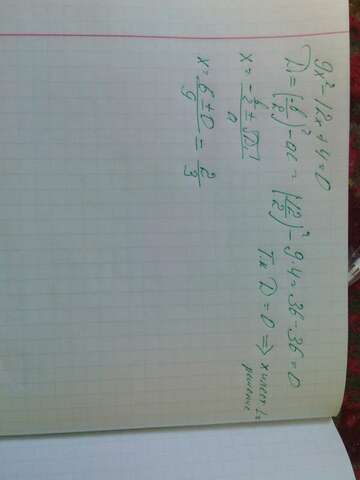 9x² - 12x + 4 = 0
D₁ = (b/2)² - ac = (12/2)² - 9·4 = 36 - 36 = 0
x = (-b/2 ± √D₁)/a Тк D = 0 ⇒ x имеет 1
решение
x = (6 ± 0)/9 = 2/3